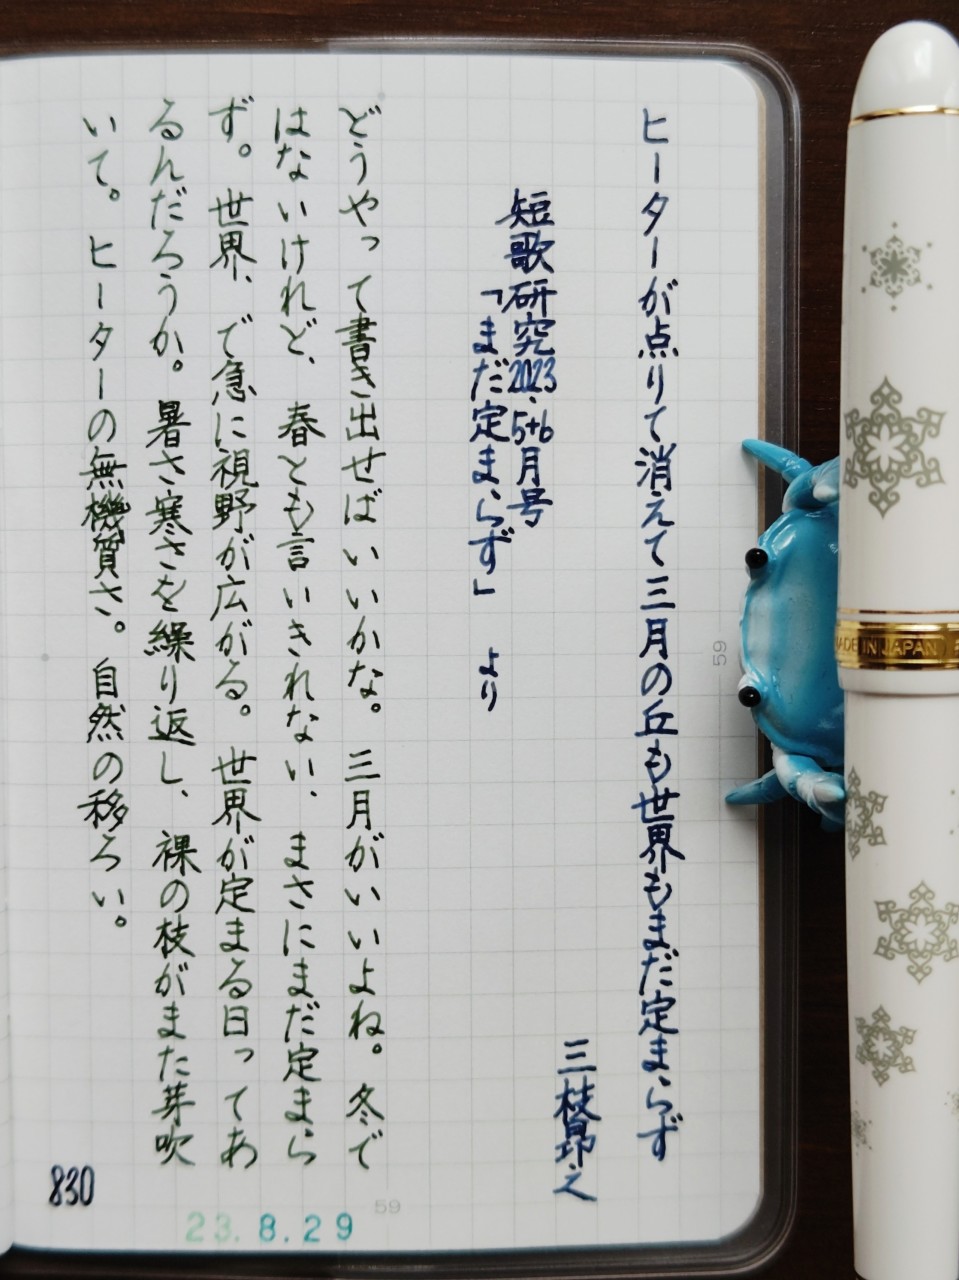 ヒーターが点りて消えて三月の丘も世界もまだ定まらず
三枝昻之
短歌研究2023.5+6月号
「まだ定まらず」より
どうやって書き出せばいいかな。三月がいいよね。冬で
はないけれど、春とも言いきれない、まさにまだ定まら
ず。世界、で急に視野が広がる。世界が定まる日ってあ
るんだろうか。暑さ寒さを繰り返し、裸の枝がまた芽吹
いて。ヒーターの無機質さ。自然の移ろい。
830
23.8.29
59
59
MADE IN JAPAN